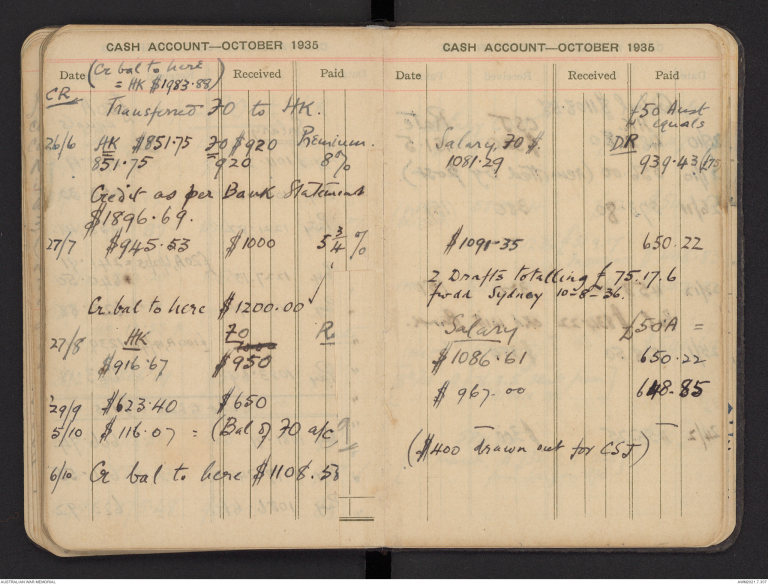 CASH ACCOUNT—OCTOBER 1935
Date (Cr bal to here Received Paid
= HK $1983.88)
CR
Transferred FO to HK.
26/6 HK $851.75 FO $920 Premium.
851.75 920 8%
Credit as per Bank Statement
$1896.69.
27/7 $945.53 $1000 5 3/4 %
Cr. bal to here $1200.00 ✓
HK FO R
27/8 $916.67 $950
29/9 $623.40 $650
5/10 $116.07 = (Bal of FO a/c
6/10 Cr bal to here $1108.58
CASH ACCOUNT—OCTOBER 1935
Date Received Paid
£50 Aust
equals
Salary, FO $. DR
1081.29 939.43
$1091-35 650.22
2 Drafts totalling £75.17.6
fwdd Sydney 10-8-36.
Salary £50A =
$1086.61 650.22
$967.00 648.85
($400 drawn out for CSJ)
AUSTRALIAN WAR MEMORIAL
AWM2021.7.307